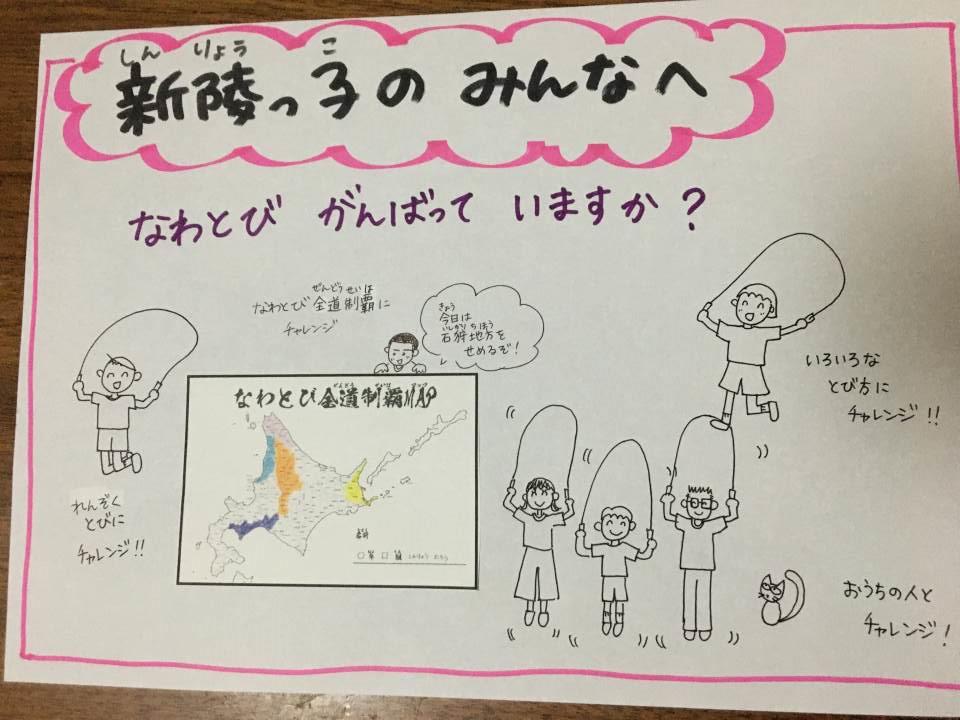 しん りょう こ
新陵っ子の みんなへ
なわとび がんばって いますか？
ぜんどう せいは
なわとび 全道制覇に
チャレンジ
きょう
今日は
いしかり ちほう
石狩地方を
せめるぞ！
なわとび全道制覇MAP
れんぞく
とびに
チャレンジ!!
いろいろな
とび方に
チャレンジ!!
おうちの人と
チャレンジ！